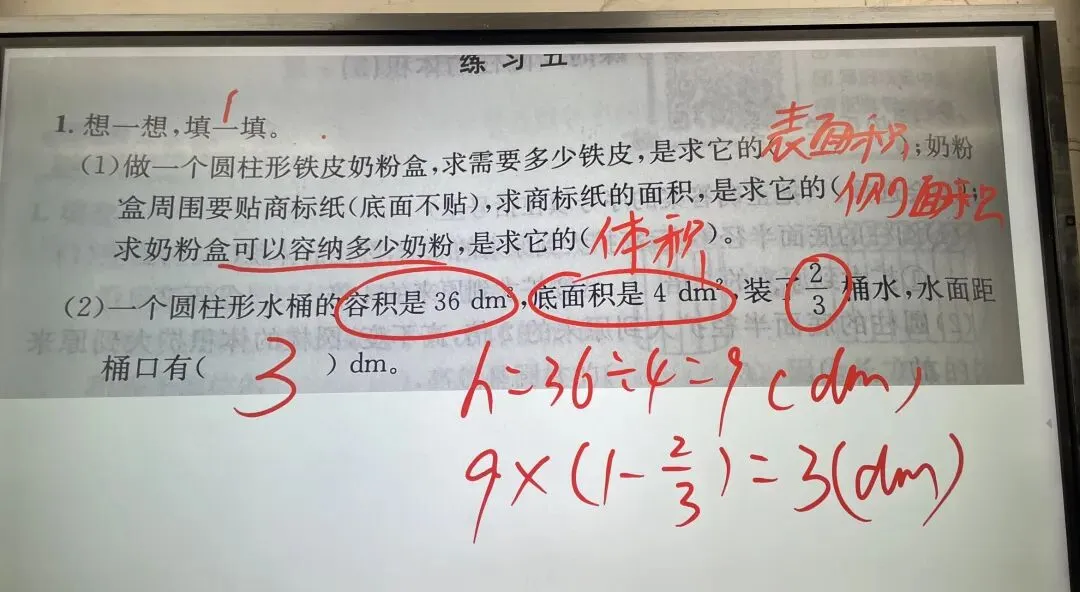 练习五
1. 想一想,填一填。
(1)做一个圆柱形铁皮奶粉盒,求需要多少铁皮,是求它的表面积;奶粉
盒周围要贴商标纸(底面不贴),求商标纸的面积,是求它的(侧面积);
求奶粉盒可以容纳多少奶粉,是求它的(体积)。
(2)一个圆柱形水桶的容积是 36 dm³,底面积是 4 dm²,装了 2/3 桶水,水面距
桶口有( 3 ) dm。
h=36÷4=9(dm)
9×(1-2/3)=3(dm)